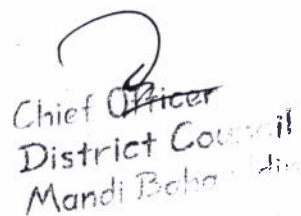 Chief Officer
District Council
Mandi Baha